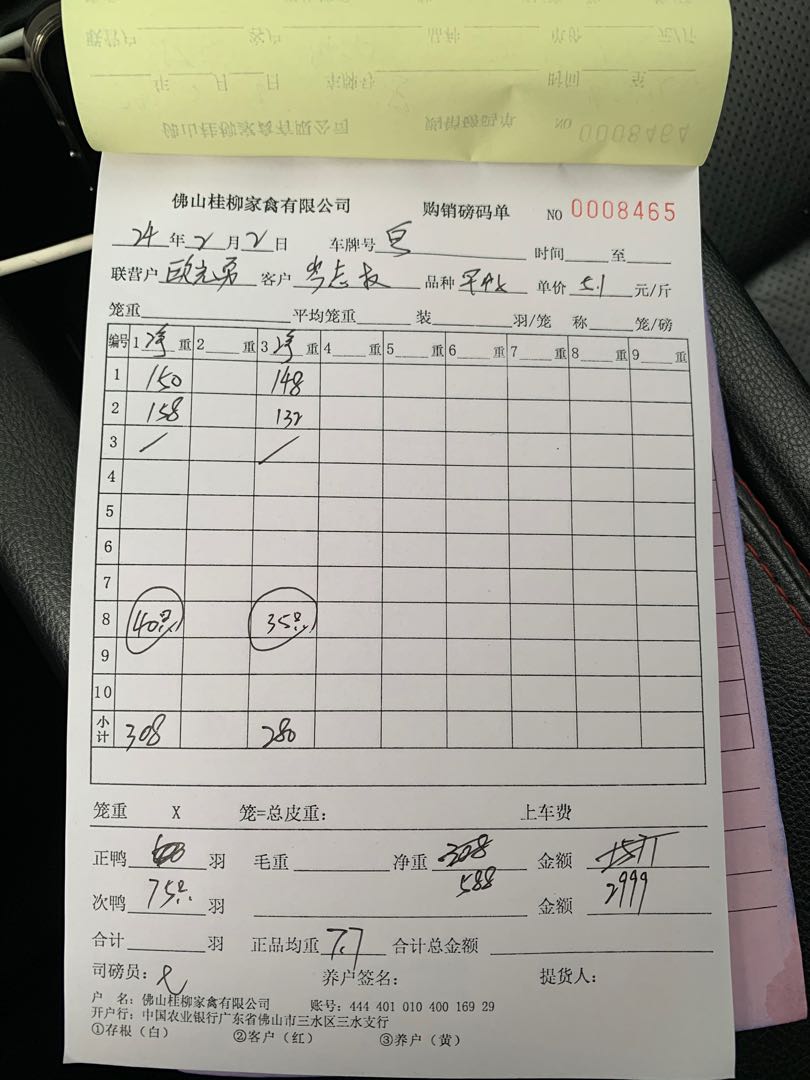 佛山桂柳家禽有限公司 购销磅码单 NO 0008464
佛山桂柳家禽有限公司 购销磅码单 NO 0008465
24年2月2日 车牌号 自 时间 至
联营户 欧 客户 志 品种 单价 5.1 元/斤
笼重 平均笼重 装 羽/笼 称 笼/磅
编号 1 净 重 2 重 3 净 重 4 重 5 重 6 重 7 重 8 重 9 重
1 150 148
2 158 132
3 / /
4
5
6
7
8 40只 35只
9
10
小计 308 280
笼重 X 笼=总皮重: 上车费
正鸭 羽 毛重 净重 308 金额
588 2999
次鸭 75只 羽 金额
合计 羽 正品均重 7.7 合计总金额
司磅员: 养户签名: 提货人:
户 名: 佛山桂柳家禽有限公司 账号: 444 401 010 400 169 29
开户行: 中国农业银行广东省佛山市三水区三水支行
①存根(白) ②客户(红) ③养户(黄)